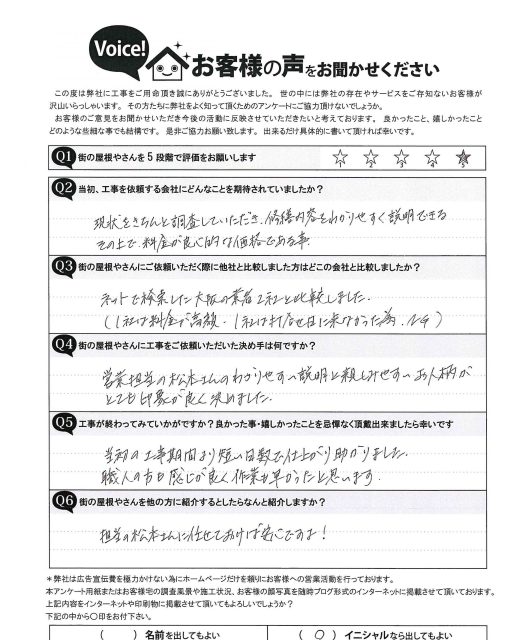 Voice!
お客様の声をお聞かせください
この度は弊社に工事をご用命頂き誠にありがとうございました。 世の中には弊社の存在やサービスをご存知ないお客様が
沢山いらっしゃいます。 その方たちに弊社をよく知って頂くためのアンケートにご協力頂けないでしょうか。
お客様のご意見をお聞かせいただき今後の活動に反映させていただきたいと考えております。 良かったこと、嬉しかったこと
どのような些細な事でも結構です。 是非ご協力お願い致します。 出来るだけ具体的に書いて頂ければ幸いです。
Q1 街の屋根やさんを5段階で評価をお願いします
1 2 3 4 5
Q2 当初、工事を依頼する会社にどんなことを期待されていましたか?
現状をきちんと調査していただき、修繕内容をわかりやすく説明できる
その上で、料金が良心的な価格である事。
Q3 街の屋根やさんにご依頼いただく際に他社と比較しました方はどこの会社と比較しましたか?
ネットで検索した大阪の業者2社と比較しました。
(1社は料金が高額、1社は打合せ日に来なかった為、NG)
Q4 街の屋根やさんに工事をご依頼いただいた決め手は何ですか?
営業担当の松本さんのわかりやすい説明と親しみやすいお人柄が
とても印象が良く決めました。
Q5 工事が終わってみていかがですか? 良かった事・嬉しかったことを忌憚なく頂戴出来ましたら幸いです
当初の工事期間より短い日数で仕上がり助かりました。
職人の方も感じが良く作業も早かったと思います。
Q6 街の屋根やさんを他の方に紹介するとしたらなんと紹介しますか?
担当の松本さんに任せておけば安心ですよ!
*弊社は広告宣伝費を極力かけない為にホームページだけを頼りにお客様への営業活動を行っております。
本アンケート用紙またはお客様宅の調査風景や施工状況、お客様の顔写真を随時ブログ形式のインターネットに掲載させて頂いております。
上記内容をインターネットや印刷物に掲載させて頂いてもよろしいでしょうか?
下記の中から〇印をお付下さい。
( ) 名前を出してもよい ( ○ ) イニシャルなら出してもよい